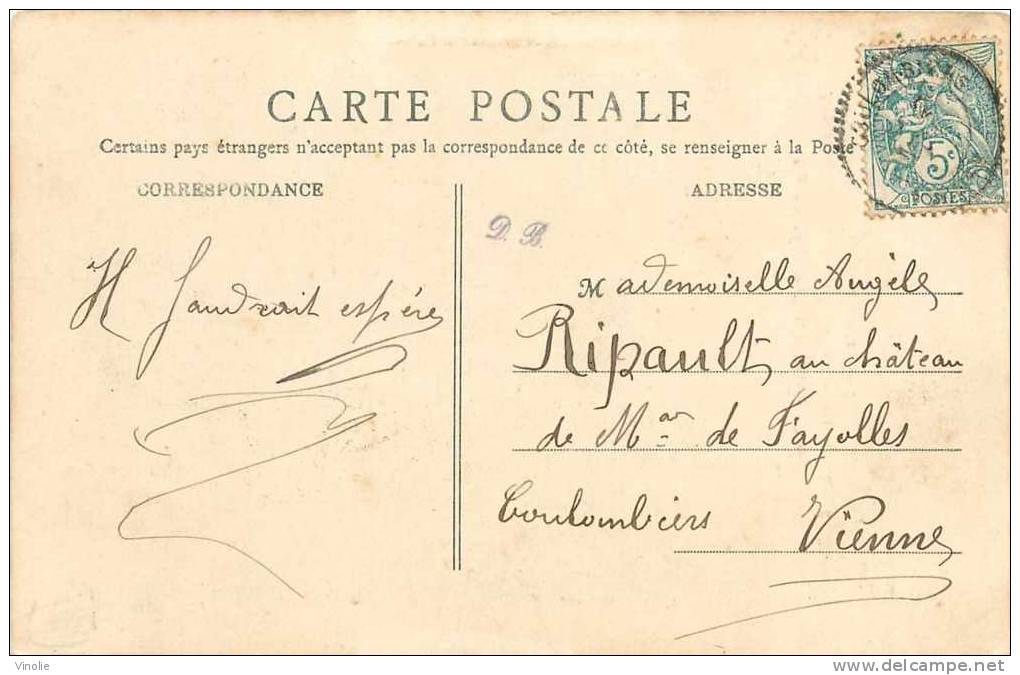 CARTE POSTALE
Certains pays étrangers n'acceptant pas la correspondance de ce côté, se renseigner à la Poste
CORRESPONDANCE
ADRESSE
5c
POSTES
D. B.
H Jaudrait espérer
Mademoiselle Angèle
Ripault au château
de Mar de Fayolles
Coulombiers Vienne
Vinolie
www.delcampe.net